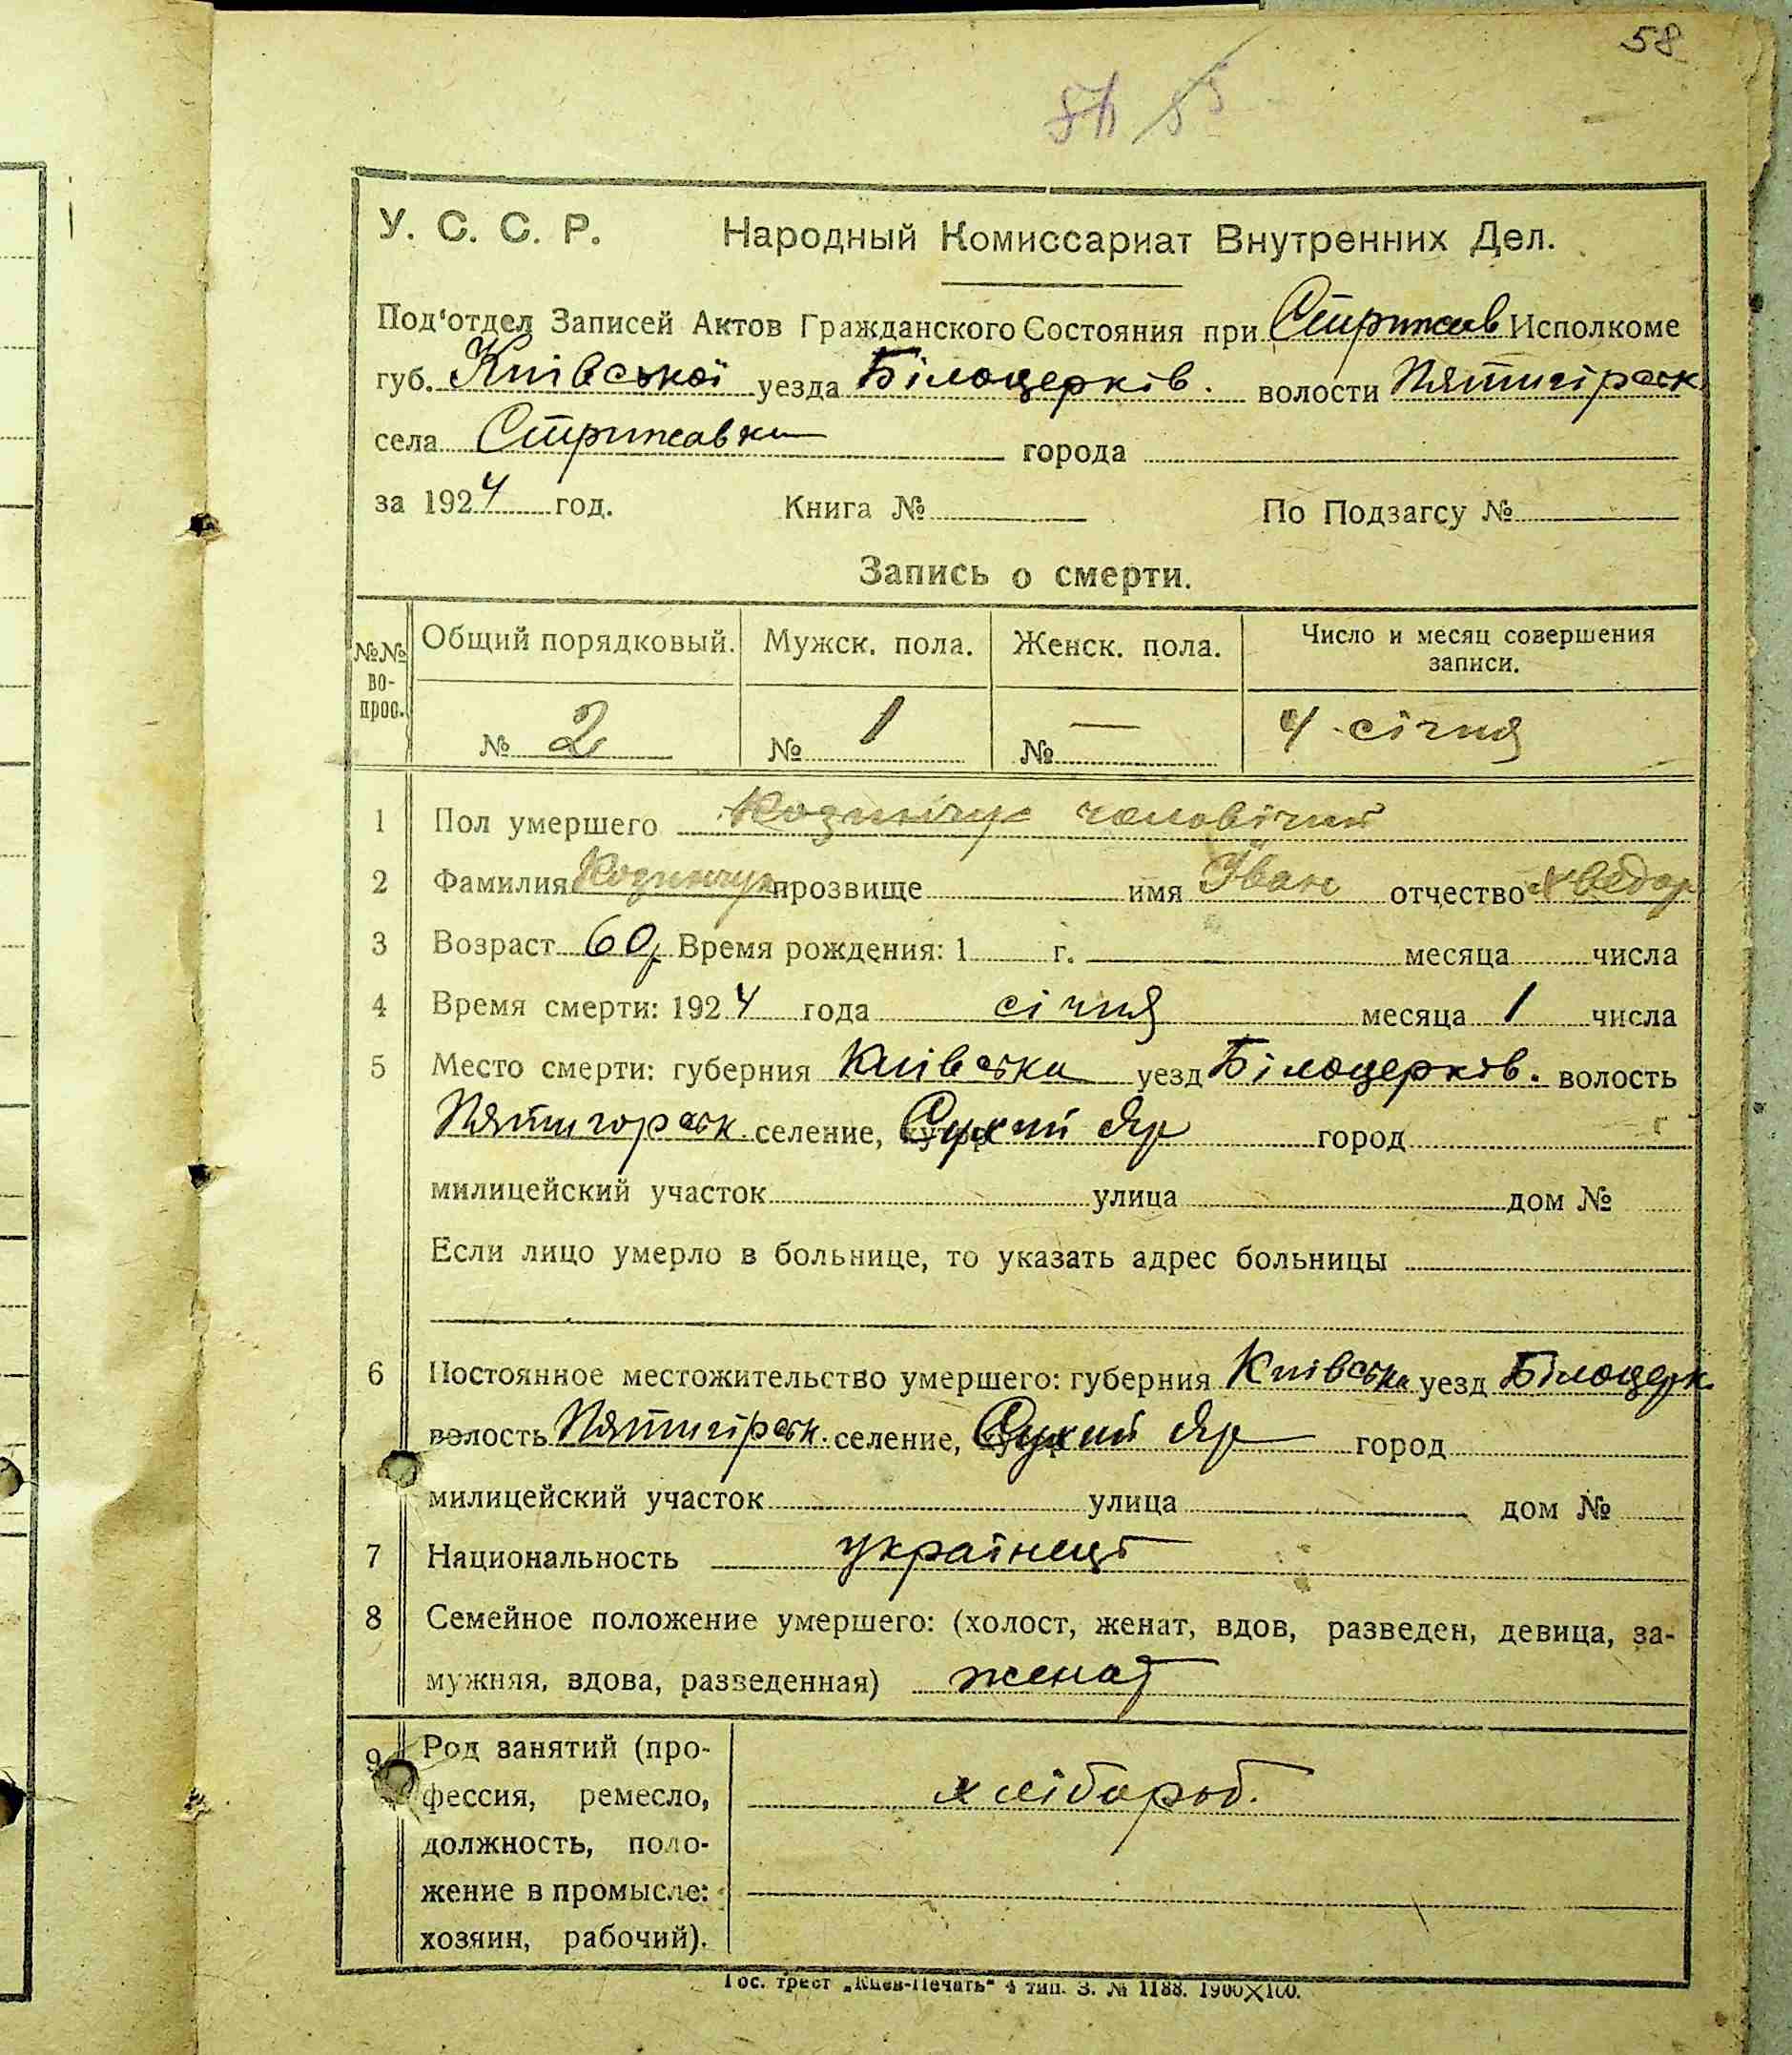 58
У. С. С. Р. Народный Комиссариат Внутренних Дел.
Под'отдел Записей Актов Гражданского Состояния при Стрижав Исполкоме
губ. Київської уезда Білоцерків. волости Пятигірськ
села Стрижавки города
за 1924 год. Книга № По Подзагсу №
Запись о смерти.
№№ во-прос. Общий порядковый. Мужск. пола. Женск. пола. Число и месяц совершения записи.
№ 2 № 1 № — 4 січня
1 Пол умершего чоловічий
2 Фамилия прозвище имя Іван отчество Хведор
3 Возраст 60 р. Время рождения: 1 г. месяца числа
4 Время смерти: 1924 года січня месяца 1 числа
5 Место смерти: губерния Київська уезд Білоцерків. волость
Пятигорськ. селение, Сухий Яр город
милицейский участок улица дом №
Если лицо умерло в больнице, то указать адрес больницы
6 Постоянное местожительство умершего: губерния Київська уезд Білоцерк
волость Пятигірськ. селение, Сухий Яр город
милицейский участок улица дом №
7 Национальность українець
8 Семейное положение умершего: (холост, женат, вдов, разведен, девица, за-
мужняя, вдова, разведенная) женат
9 Род занятий (про-
фессия, ремесло, хлібороб.
должность, поло-
жение в промысле:
хозяин, рабочий).
Гос. трест „Киев-Печать" 4 тип. З. № 1188. 1900×100.